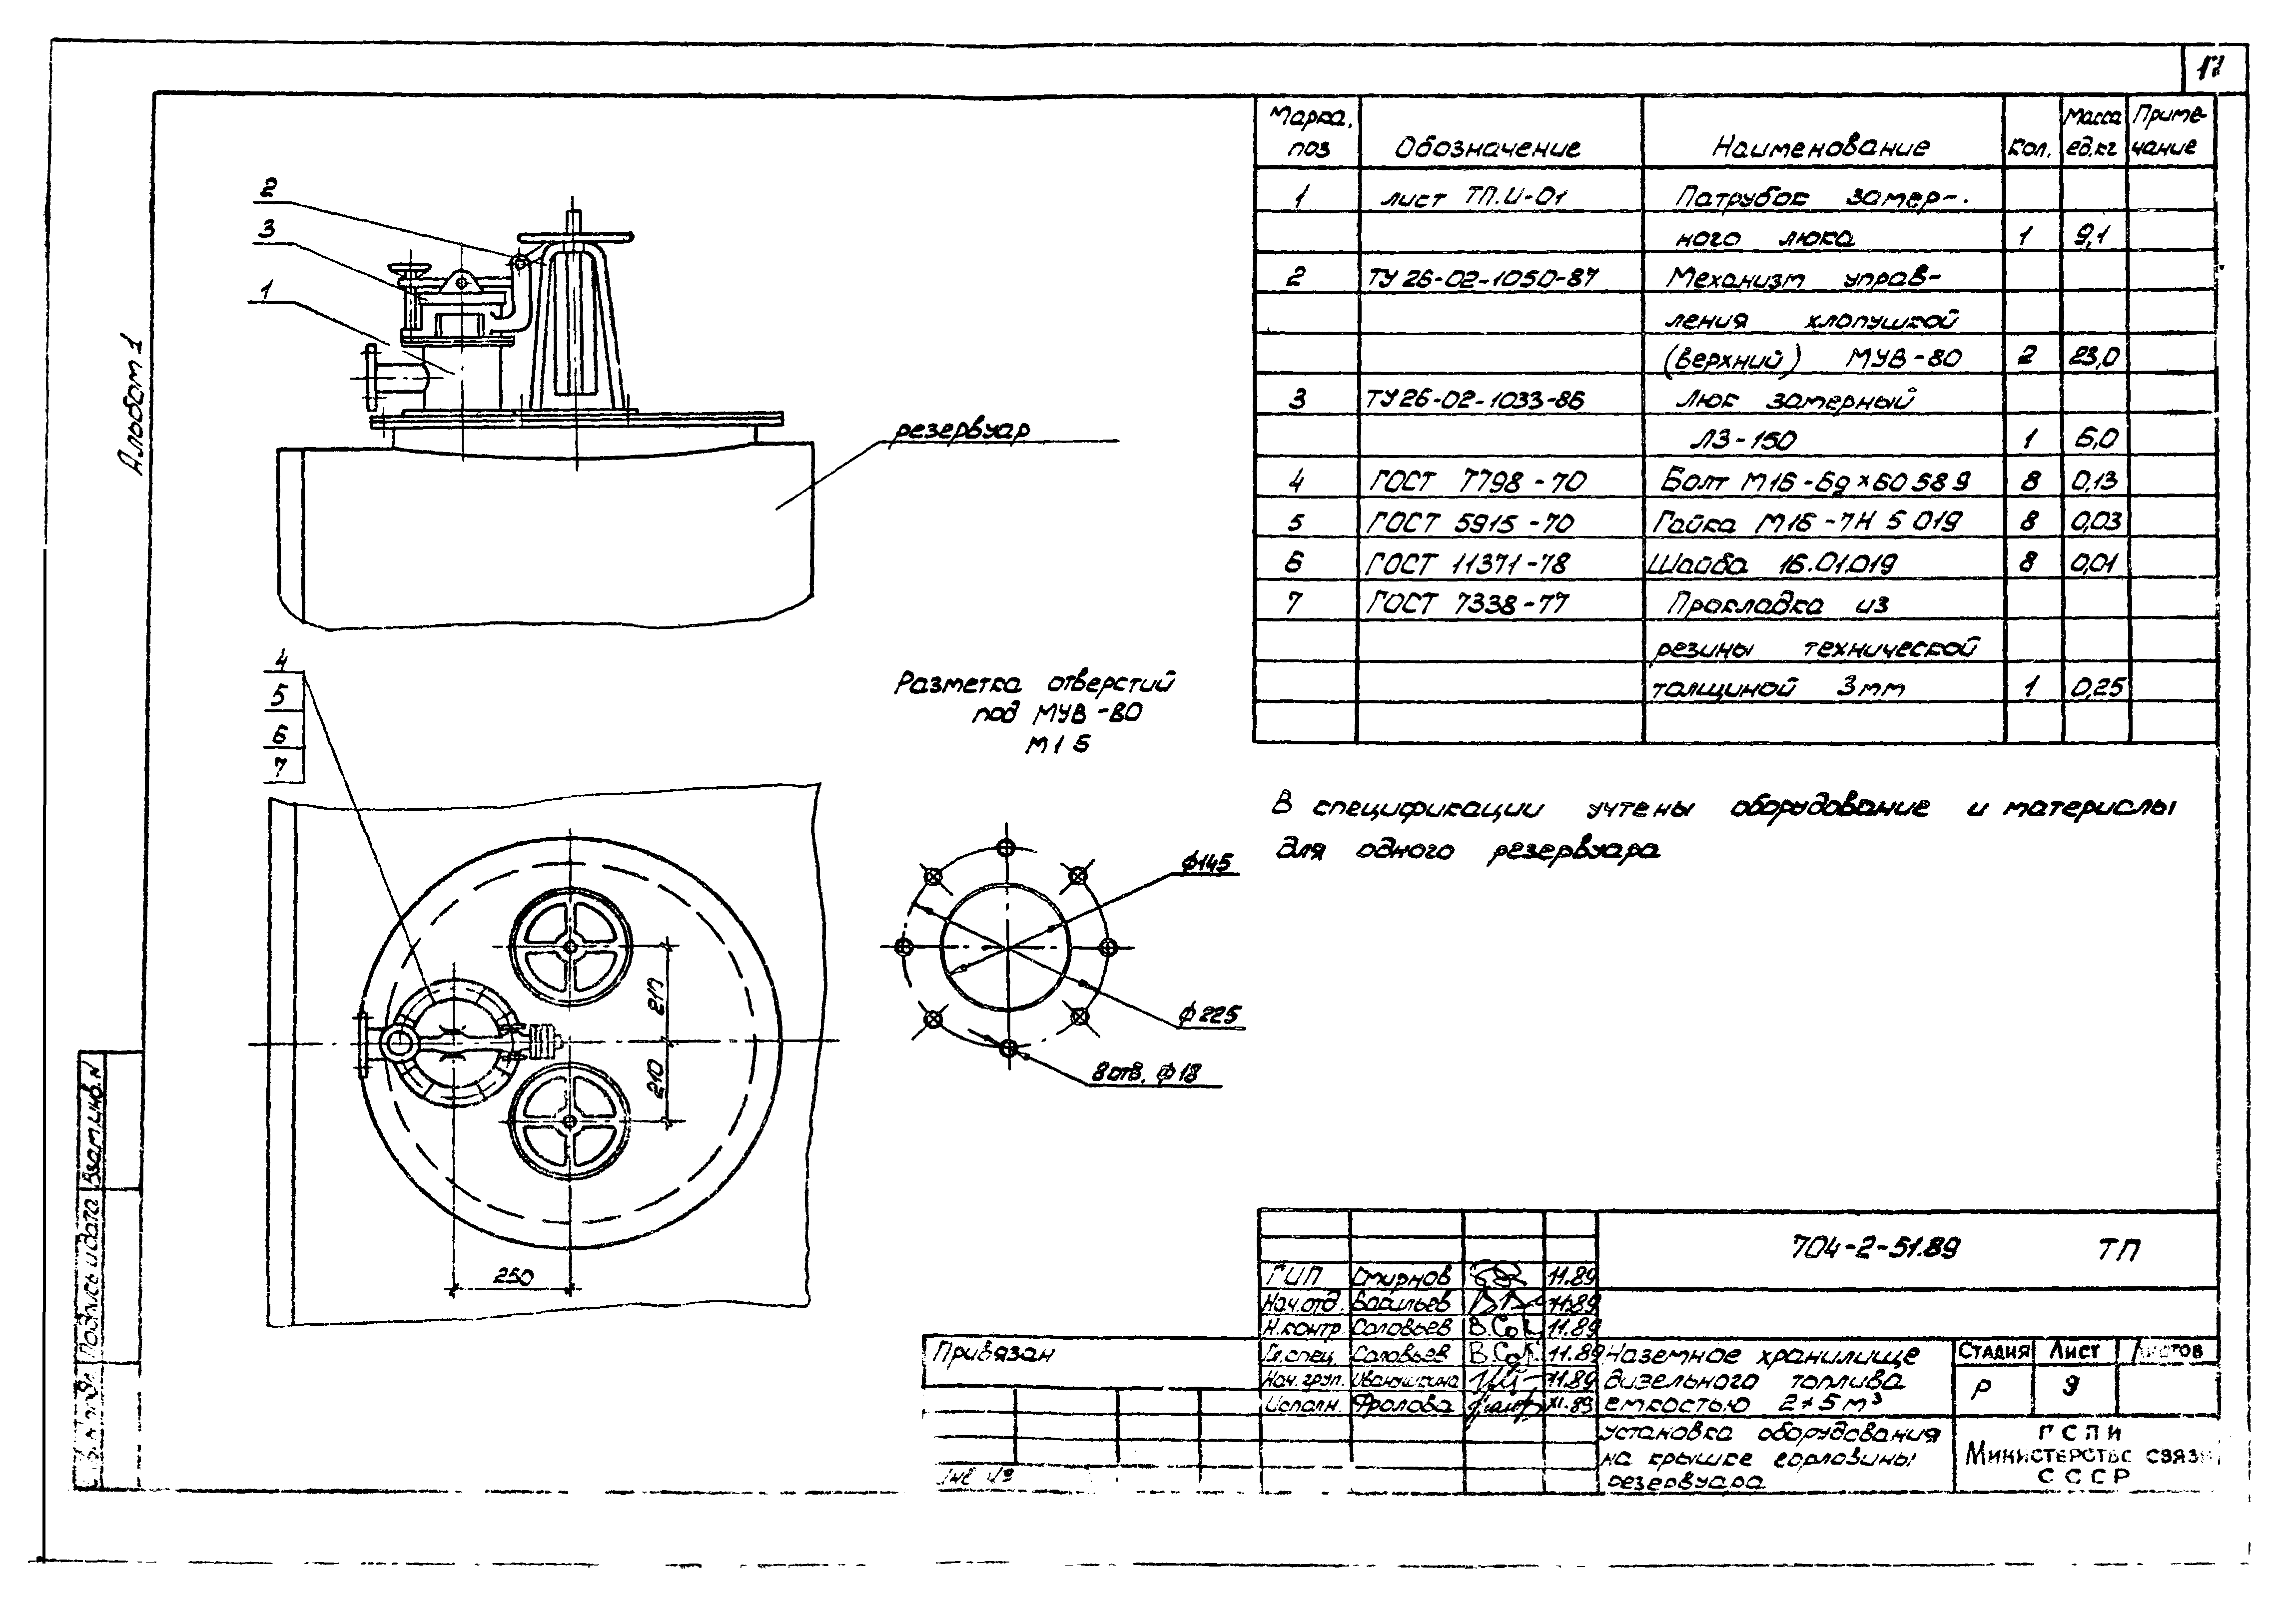 17
Альбом 1
Марка, поз Обозначение Наименование Кол. Масса ед.кг Приме-чание
1 лист ТП.И-01 Патрубок замер-
ного люка 1 9,1
2 ТУ 26-02-1050-87 Механизм управ-
ления хлопушкой
(верхний) МУВ-80 2 23,0
3 ТУ 26-02-1033-86 Люк замерный
ЛЗ-150 1 6,0
4 ГОСТ 7798-70 Болт М16-6g×60 58 9 8 0,13
5 ГОСТ 5915-70 Гайка М16-7Н 5 019 8 0,03
6 ГОСТ 11371-78 Шайба 16.01.019 8 0,01
7 ГОСТ 7338-77 Прокладка из
резины технической
толщиной 3мм 1 0,25
2
3
1
резервуар
4
5
6
7
Разметка отверстий
под МУВ-80
М 1 5
В спецификации учтены оборудование и материалы
для одного резервуара
ф145
ф225
8 отв. ф18
210
250
704-2-51.89 ТП
ГИП Смирнов 11.89
Нач.отд. Васильев 11.89
Н.контр Соловьев В.Сол 11.89
Гл.спец Соловьев В.Сол 11.89
Нач.груп. Иванушкина 11.89
Исполн. Фролова XI.89
Привязан
Инв №
Наземное хранилище
дизельного топлива
емкостью 2×5 м³
Стадия Лист Листов
Р 9
Установка оборудования
на крышке горловины
резервуара
ГСПИ
Министерство связи
СССР
Взам.инв.N
Подпись и дата